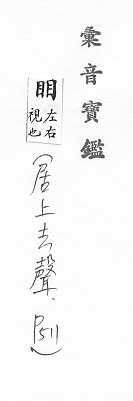 彙音寶鑑
䀠 左右視也
(居上去聲、P511)